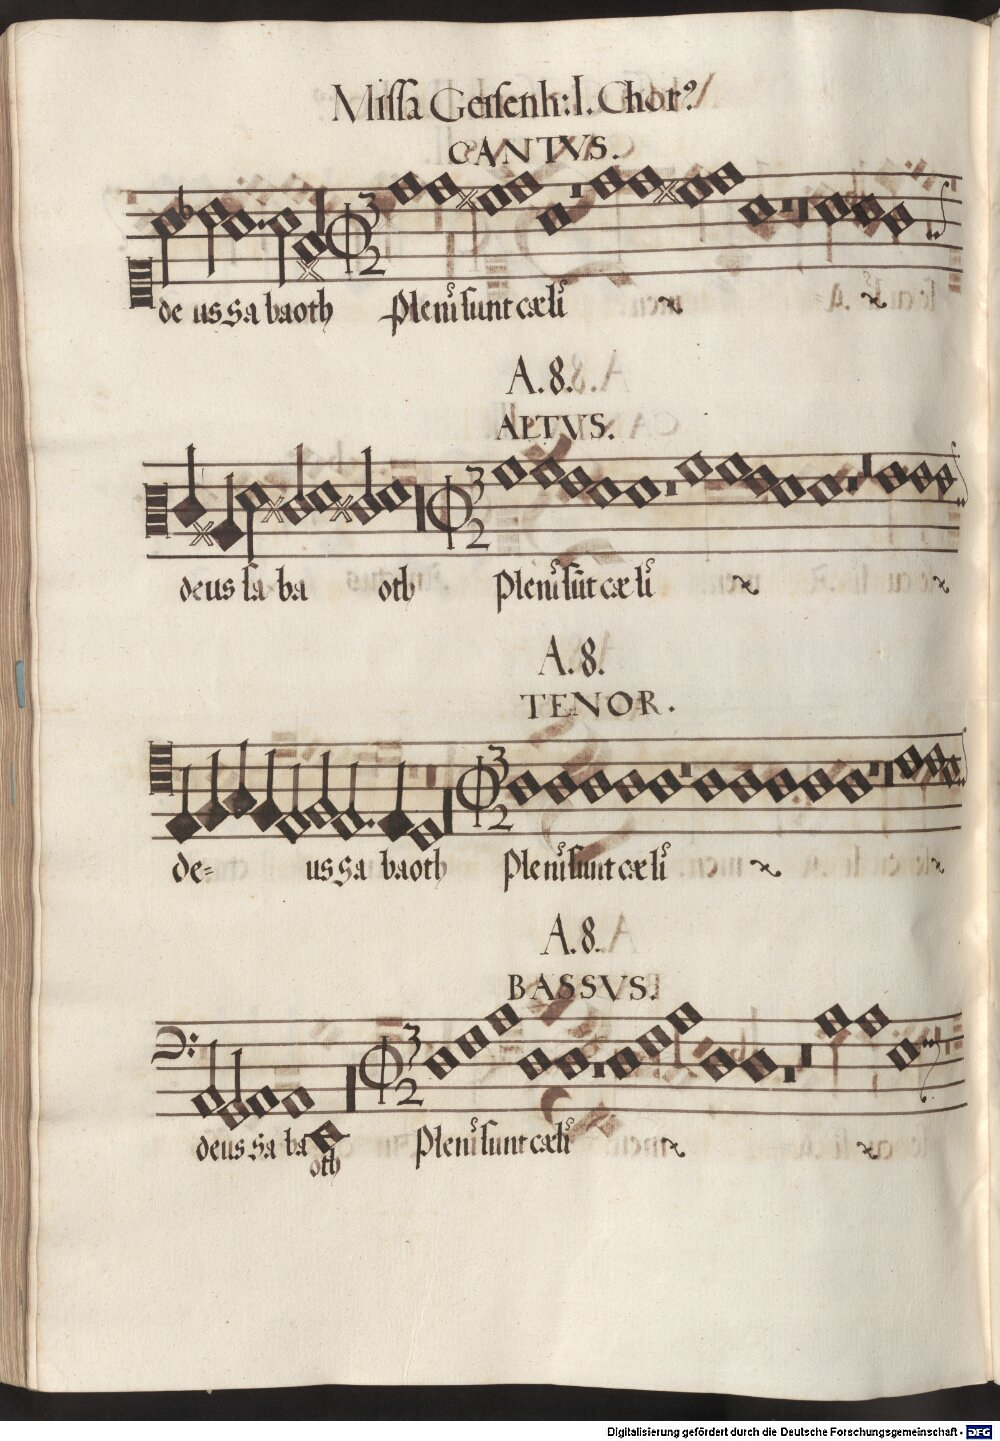 Missa Geisenh: I. Chor9
CANTVS.
3
2
de us sa baoth Plenī sunt cælī
A. 8.
ALTVS.
3
2
deus sa ba oth Plenī sūt cælī
A. 8.
TENOR.
3
2
de= us sa baoth Plenī sunt cælī
A. 8.
BASSVS.
3
2
deus sa ba Plenī sunt cælī
oth
Digitalisierung gefördert durch die Deutsche Forschungsgemeinschaft - DFG